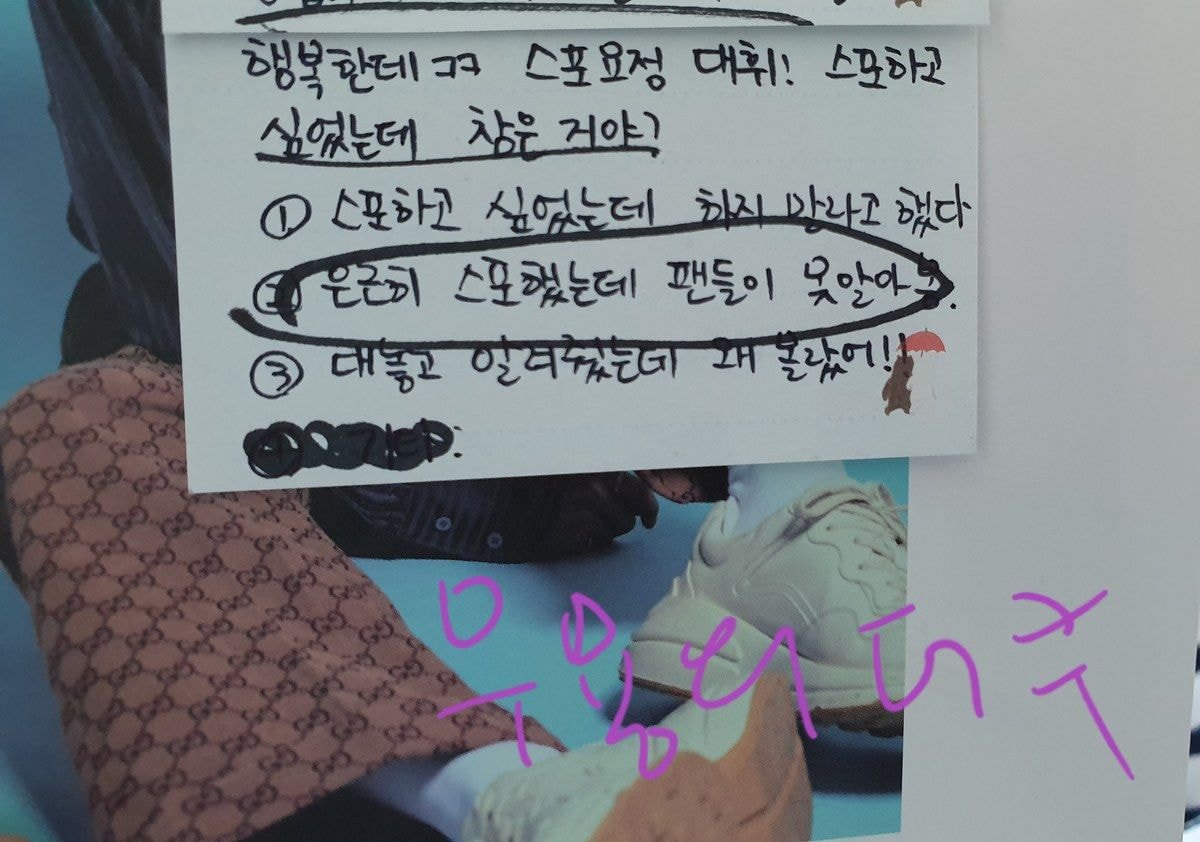 행복한데 ㅋㅋ 스포요정 대휘! 스포하고
싶었는데 참은 거야?
① 스포하고 싶었는데 하지 말라고 했다
② 은근히 스포했는데 팬들이 못알아봄.
③ 대놓고 알려줬는데 왜 몰랐어!!
④ 기타: